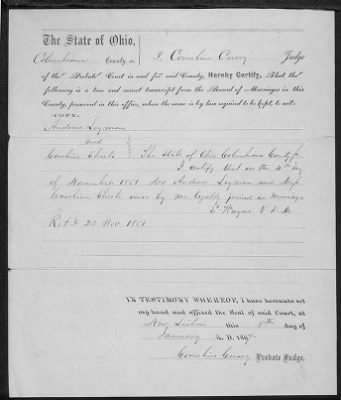 The State of Ohio,
Columbiana County, ss I, Cornelius Curry Judge
of the Probate Court in and for said County, Hereby Certify, That the
following is a true and correct transcript from the Record of Marriages in this
County, preserved in this office, where the same is by law required to be kept, to wit:
COPY.
Andrew
and
Caroline Sheets The State of Ohio Columbiana County ss
I certify that on the 4th day
of November 1851 Mr Andrew and Miss
Caroline Sheets were by me legally joined in marriage
Wayne
Ret'd 22 Nov. 1851
IN TESTIMONY WHEREOF, I have hereunto set
my hand and affixed the Seal of said Court, at
New Lisbon this 8th day of
January A. D. 189
Cornelius Curry Probate Judge.